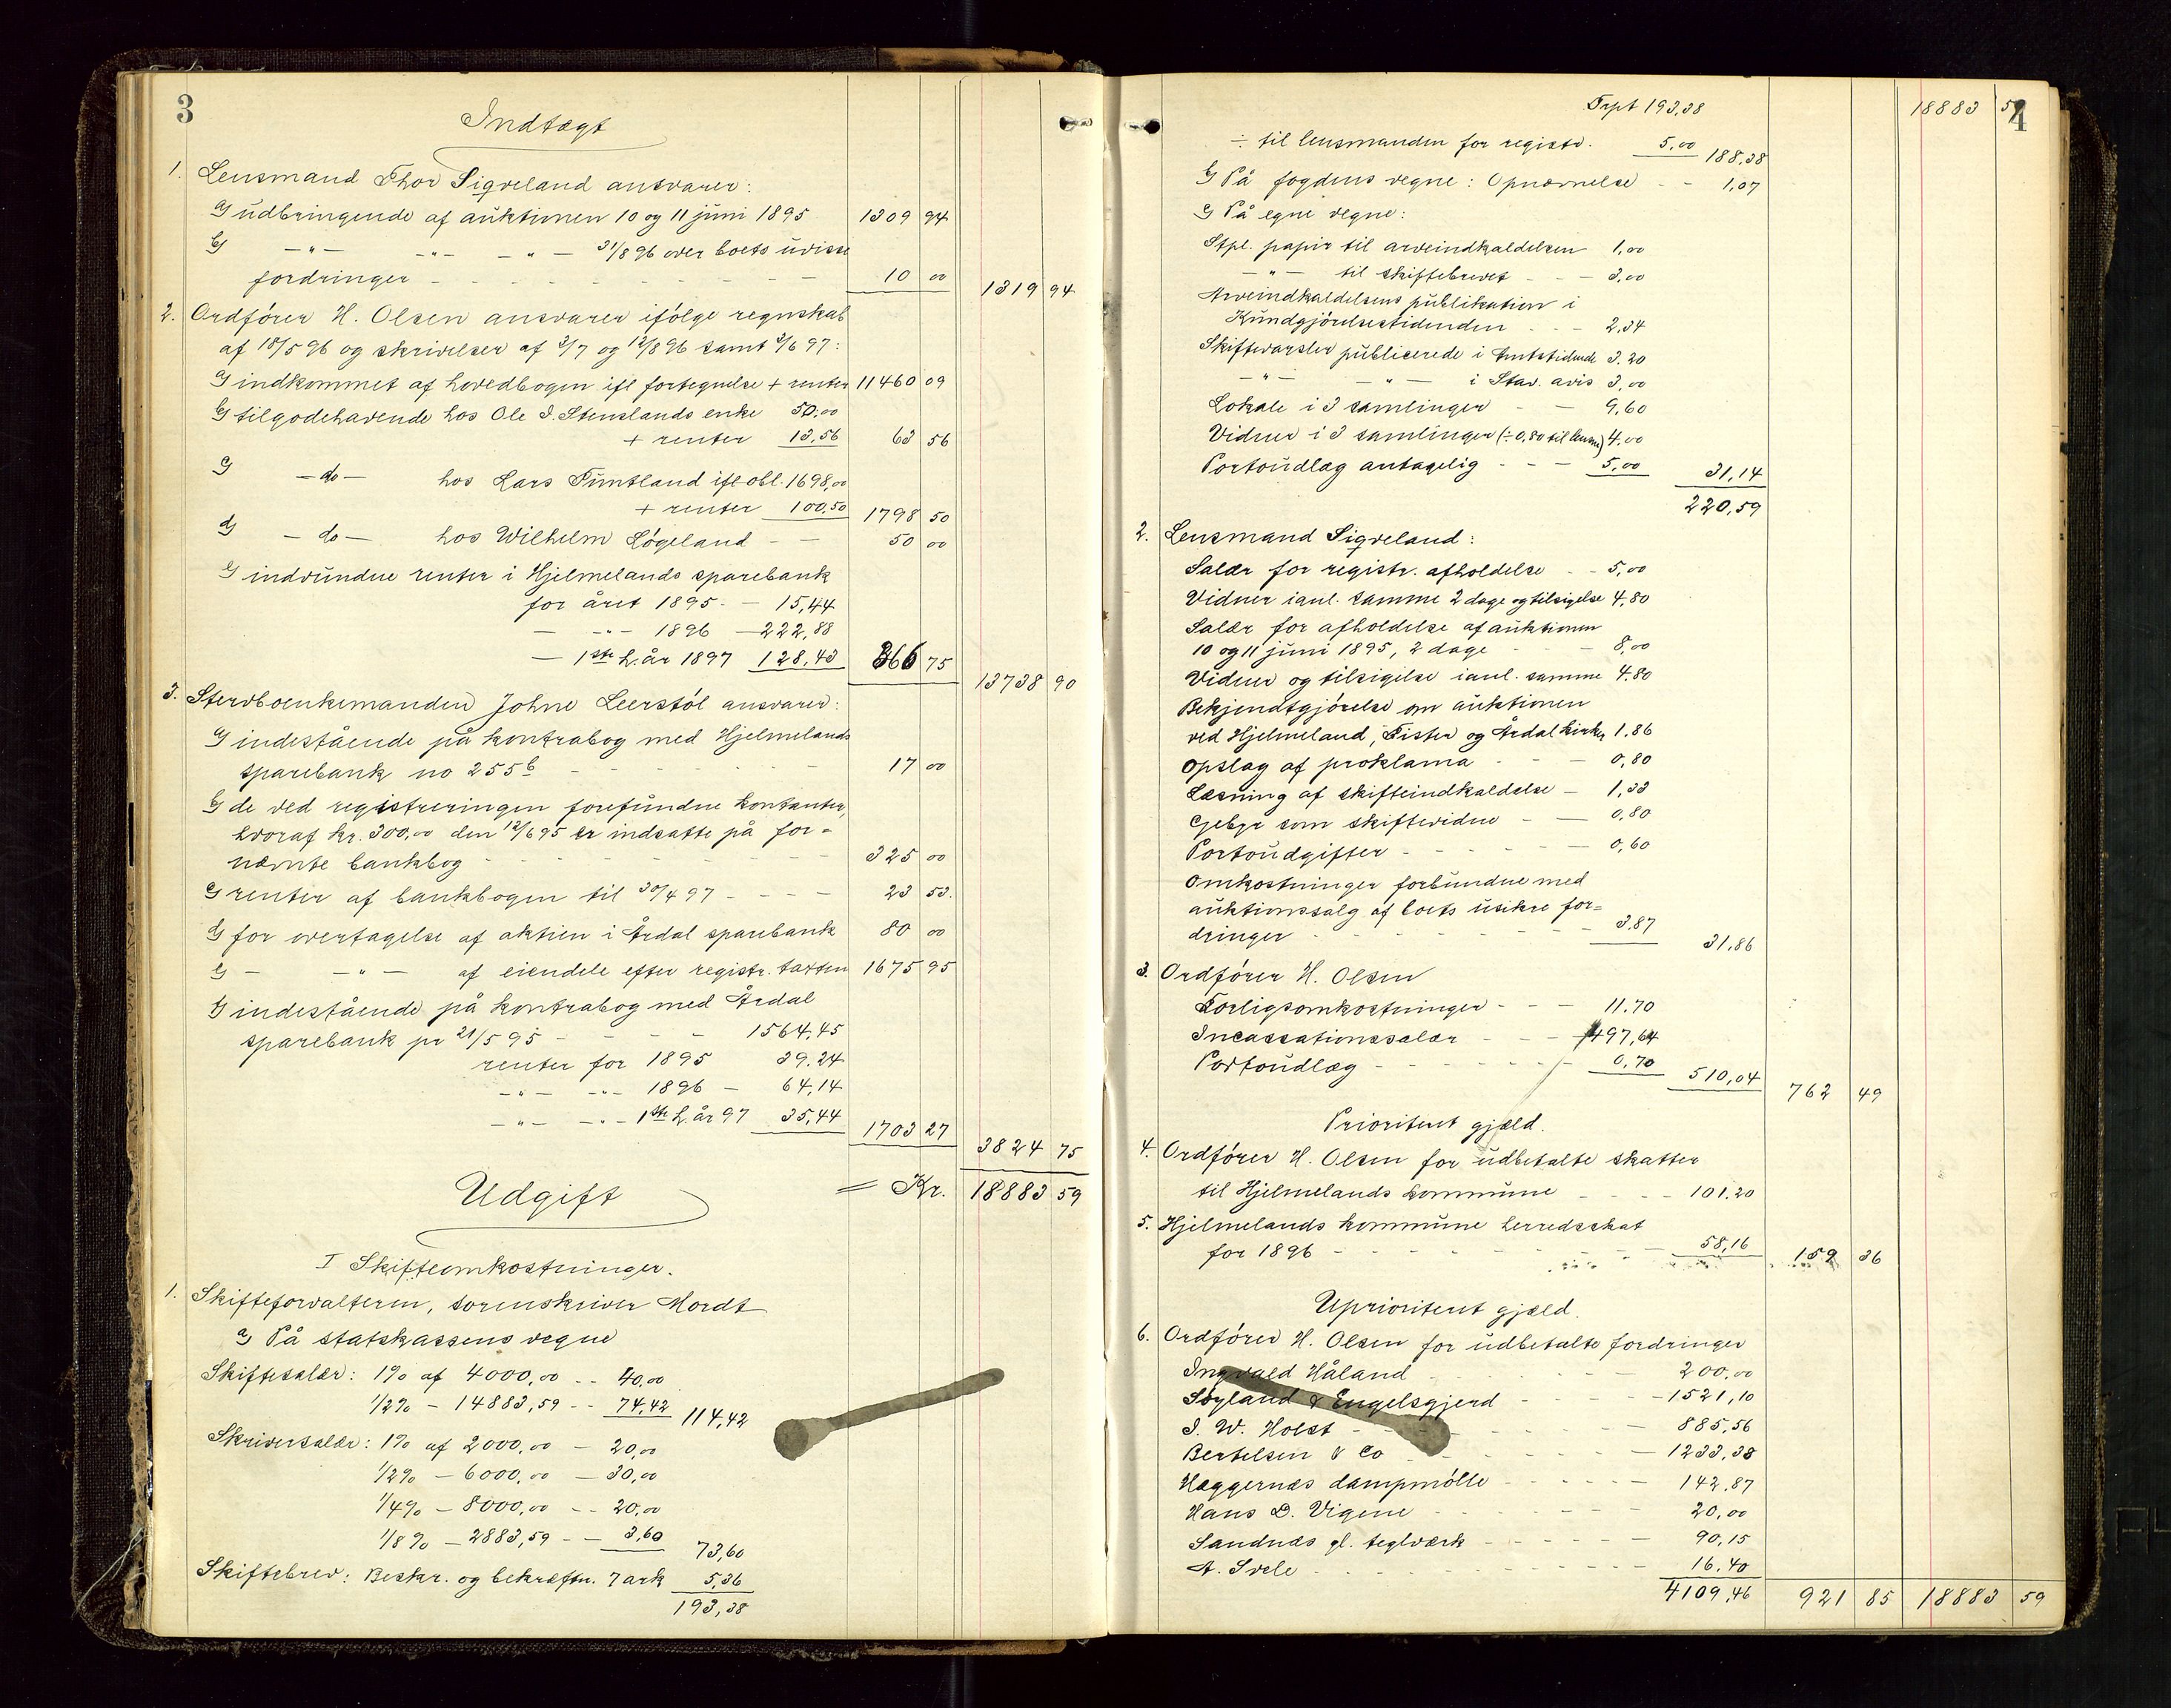 3
Indtægt
1. Lensmand Thor Sigveland ansvarer:
a) udbringende af auktionen 10 og 11 juni 1895 1309 94
b) — " — — " — — " — 31/8 96 over boets uvisse
fordringer - - - - - - 10 00 1319 94
2. Ordfører H. Olsen ansvarer ifølge regnskab
af 18/5 96 og skrivelser af 2/7 og 12/8 96 samt 3/6 97:
a) indkommet af hovedbogen ifl fortegnelse + renter 11460 09
b) tilgodehavende hos Ole I. Stenslands enke 50,00
+ renter 13,56 63 56
c) — do — hos Lars Tuntland ifl obl. 1698,00
+ renter 100,50 1798 50
d) — do — hos Wilhelm Løgeland - — 50 00
e) indvundne renter i Hjelmelands sparebank
for året 1895 - — 15,44
— - " - 1896 — 222,88
— 1ste h.år 1897 128,43 366 75 13738 90
3. Stervboenkemanden Johne Leerstøl ansvarer:
a) indestående på kontrabog med Hjelmelands
sparebank no 255b - - - - - 17 00
b) de ved registreringen forefundne kontanter,
hvoraf kr. 300,00 den 12/6 95 er indsatte på for-
nævnte bankbog - - - - - - 325 00
c) renter af bankbogen til 30/4 97 - - - 23 53.
d) for overtagelse af aktien i Årdal sparebank 80 00
e) — — " — af eiendele efter registr. taxten 1675 95
f) indestående på kontrabog med Årdal
sparebank pr 21/5 95 - - - - 1564,45
renter for 1895 39.24
— " — — " — 1896 — 64,14
— " — — " — 1ste h.år 97 35,44 1703 27
3824 75
Udgift = Kr. 18883 59
I Skifteomkostninger.
1. Skifteforvalteren, sorenskriver Mordt
a) På statskassens vegne
Skiftesalær: 1% af 4000,00 - - 40,00
1/2% — 14883,59 - - 74,42 114,42
Skriversalær: 1% af 2000,00 — 20,00
1/2% — 6000,00 — 30,00
1/4% — 8000,00 - - 20,00
1/8% — 2883,59 - — 3,60 73,60
Skiftebrev: Beskr. og bekræftn. 7 ark 5,36
193,38
4
Trpt 193,38 18883 59
÷ til lensmanden for registr. 5,00 188,38
b) På fogdens vegne: Opnævnelse - - 1,07
c) På egne vegne:
Stpl. papir til arveindkaldelsen 1,00
— " — til skiftebrevet - - — 3,00
Arveindkaldelsens publikation i
Kundgjørelsestidenden - - - 2.34
Skiftevarsler publicerede i Amtstidende 3.20
— " — — " — i Stav. avis 3,00
Lokale i 3 samlinger - — 9,60
Vidner i 3 samlinger (÷ 0,80 til lensm) 4.00
Portoudlæg antagelig - - — 5,00 31,14
220,59
2. Lensmand Sigveland:
Salær for registr. afholdelse - - 5,00
Vidner ianl. samme 2 dage og tilsigelse 4,80
Salær for afholdelse af auktionen
10 og 11 juni 1895, 2 dage - - — 8,00
Vidner og tilsigelse ianl. samme 4.80
Bekjendtgjørelse om auktionen
ved Hjelmeland, Fister og Årdal kirker 1.86
Opslag af proklama - - — 0,80
Læsning af skifteindkaldelse — 1,33
Gebyr som skiftevidne - — 0,80
Portoudgifter - - - - - — 0,60
Omkostninger forbundne med
auktionssalg af boets usikre for-
dringer - - - - - - - 3,87 31,86
3. Ordfører H. Olsen
Forligsomkostninger - - — 11.70
Incassationssalær - - - 497,64
Portoudlæg - - - - - - 0,70 510,04 762 49
Prioritert gjæld.
4. Ordfører H. Olsen for udbetalte skatter
til Hjelmelands kommune - - - - 101.20
5. Hjelmelands kommune herredsskat
for 1896 - - - - - - - - 58,16 159 36
Uprioritert gjæld.
6. Ordfører H. Olsen for udbetalte fordringer
Ingvald Håland - - - - - — 200,00
Søyland & Engelsgjerd - - - — 1521,10
I. W. Holst - - - - - - — 885,56
Bertelsen & Co - - - - - — 1233,38
Hæggernæs dampmølle - - - - — 142,87
Hans D. Vigene - - - - — 20,00
Sandnæs gl. teglværk - - - - — 90,15
A. Svele - - - - - - - — 16.40
4109,46 921 85 18883 59